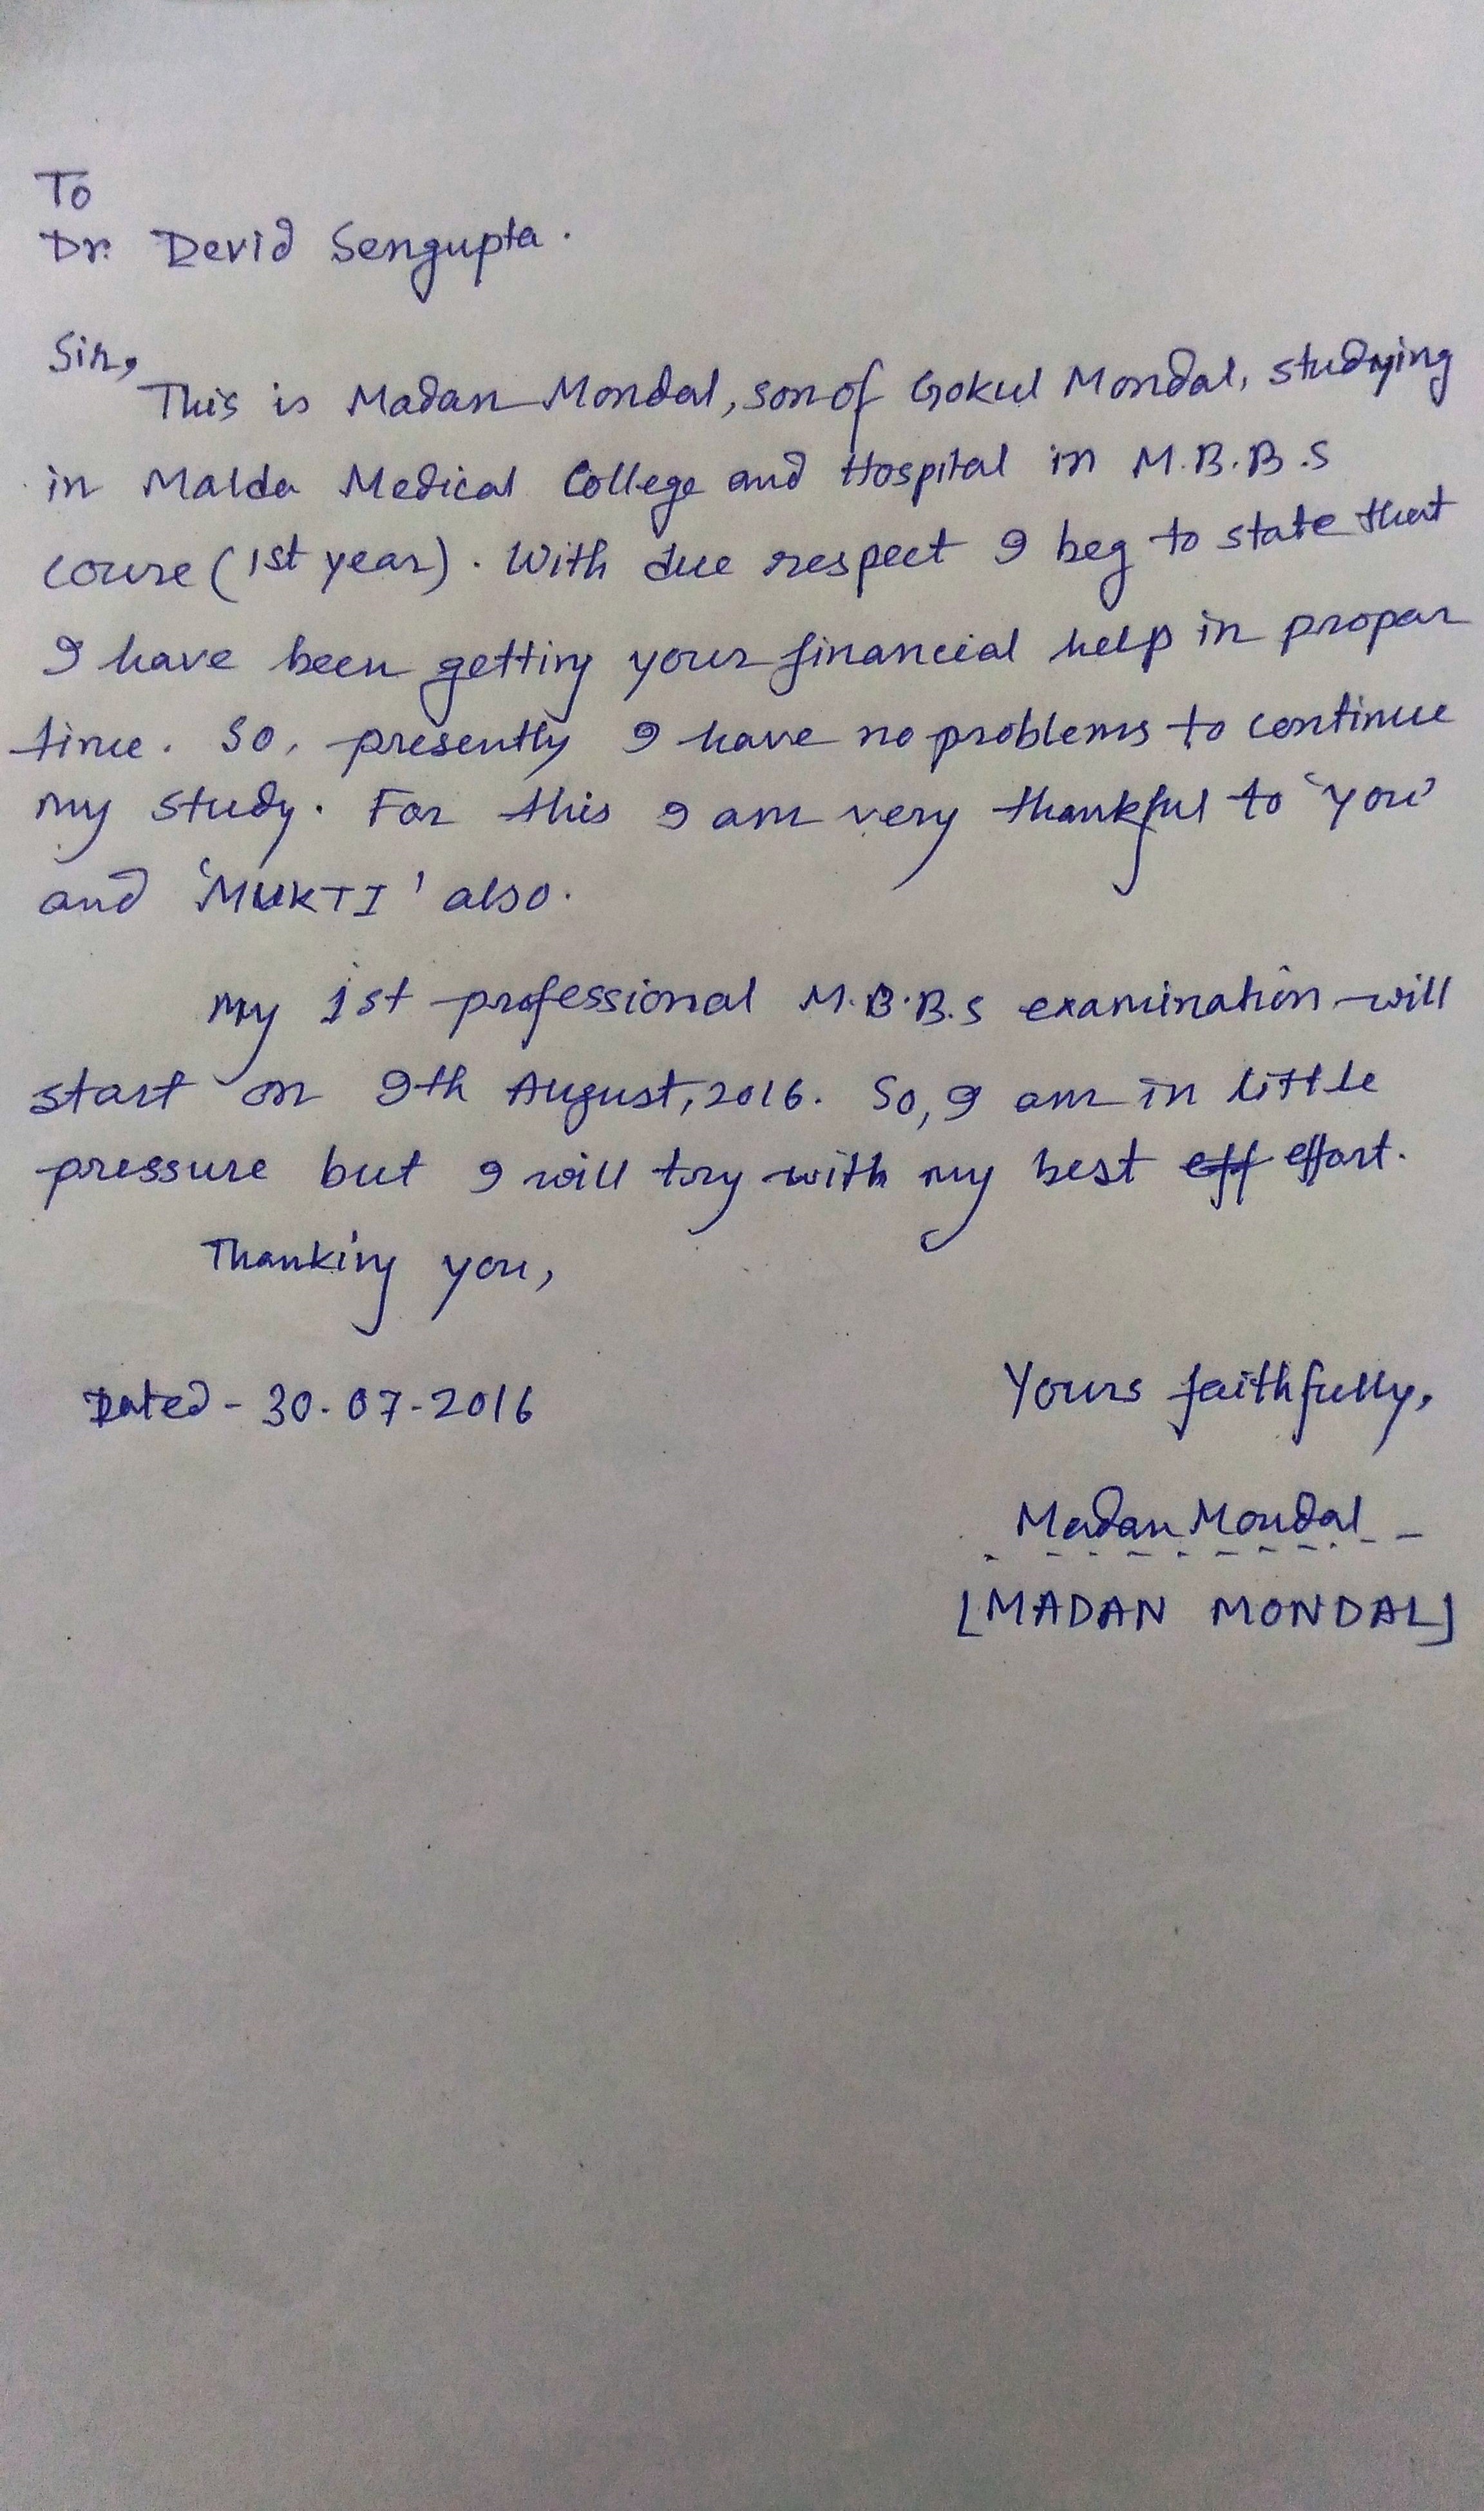 To
Dr. Devid Sengupta.
Sir,
This is Madan Mondal, son of Gokul Mondal, studying
in Malda Medical College and Hospital in M.B.B.S
course (1st year). With due respect I beg to state that
I have been getting your financial help in propar
time. So, presently I have no problems to continue
my study. For this I am very thankful to 'you'
and 'MUKTI' also.
My 1st professional M.B.B.S examination will
start on 9th August, 2016. So, I am in little
pressure but I will try with my best eff effort.
Thanking you,
Dated - 30-07-2016
Yours faithfully,
Madan Mondal
[MADAN MONDAL]